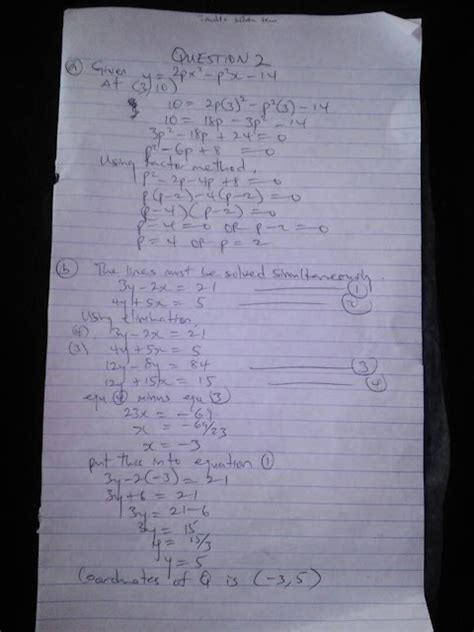 QUESTION 2
(a) Given y = 2px² - p²x - 14
At (3, 10)
10 = 2p(3)² - p²(3) - 14
10 = 18p - 3p² - 14
3p² - 18p + 24 = 0
p² - 6p + 8 = 0
Using factor method,
p² - 2p - 4p + 8 = 0
p(p-2) - 4(p-2) = 0
(p-4)(p-2) = 0
p-4 = 0 or p-2 = 0
p = 4 or p = 2
(b) The lines must be solved simultaneously.
3y - 2x = 21 (1)
4y + 5x = 5 (2)
Using elimination,
(4) 3y - 2x = 21
(3) 4y + 5x = 5
12y - 8y = 84 (3)
12y + 15x = 15 (4)
equ (4) minus equ (3)
23x = -69
x = -69/23
x = -3
put this into equation (1)
3y - 2(-3) = 21
3y + 6 = 21
3y = 21 - 6
3y = 15
y = 15/3
y = 5
Coordinates of Q is (-3, 5)